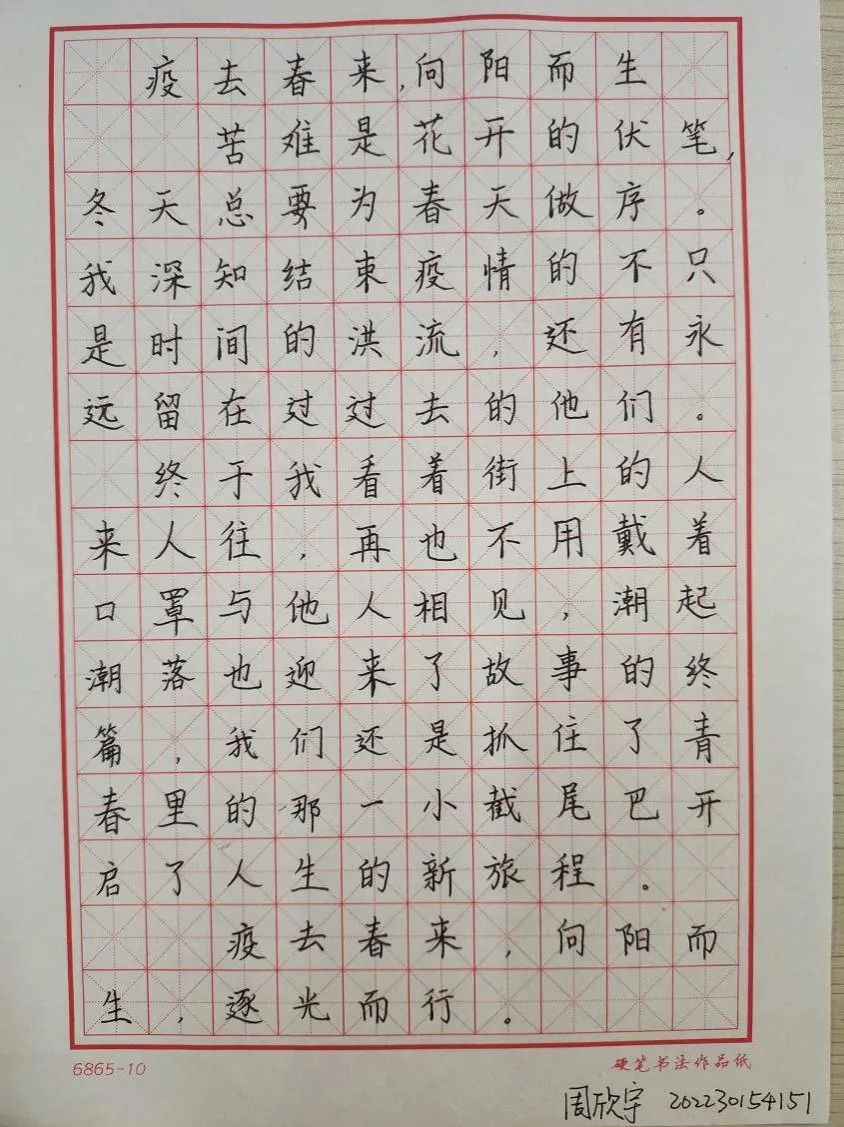 疫去春来,向阳而生
苦难是花开的伏笔,
冬天总要为春天做序。
我深知结束疫情的不只
是时间的洪流,还有永
远留在过过去的他们。
终于我看着街上的人
来人往,再也不用戴着
口罩与他人相见,潮起
潮落也迎来了故事的终
篇,我们还是抓住了青
春里的那一小截尾巴开
启了人生的新旅程。
疫去春来,向阳而
生,逐光而行。
6865-10 硬笔书法作品纸
周欣宇 202230154151